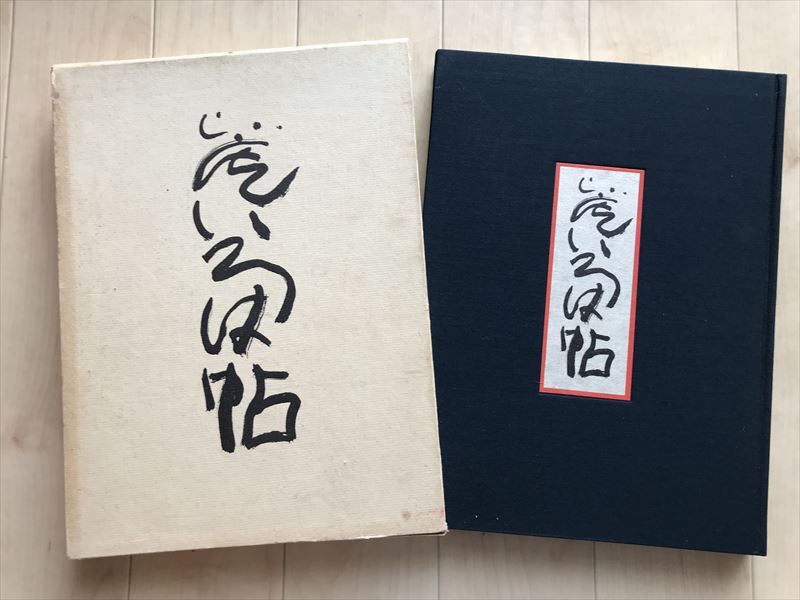 いろは帖
いろは帖